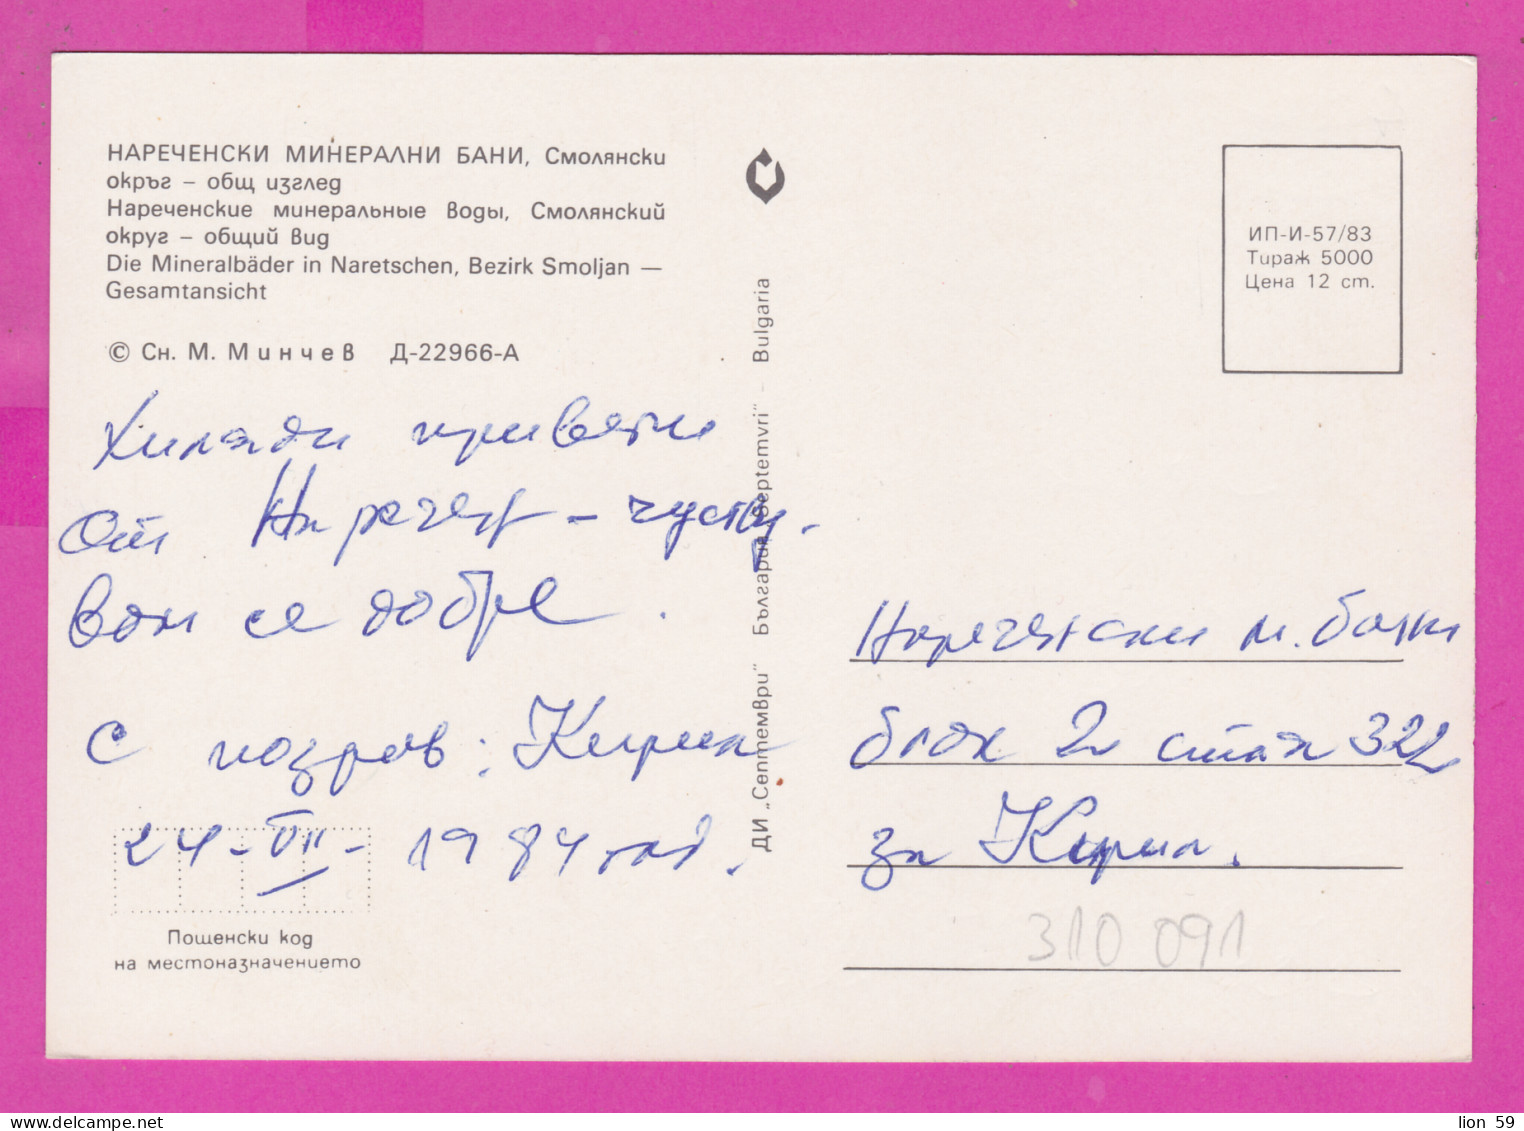 НАРЕЧЕНСКИ МИНЕРАЛНИ БАНИ, Смолянски
окръг – общ изглед
Нареченские минеральные воды, Смолянский
округ – общий вид
Die Mineralbäder in Naretschen, Bezirk Smoljan —
Gesamtansicht
© Сн. М. Минчев Д-22966-А
Хиляди привети
от Наречен – чуств.
вам се добре.
С поздрав: Кирил
24-VII-1984 год.
Пощенски код
на местоназначението
ДИ „Септември" България „Septemvri" – Bulgaria
ИП-И-57/83
Тираж 5000
Цена 12 ст.
Нареченски м. бани
блок 2 стая 322
за Кирил.
310 091
lion 59